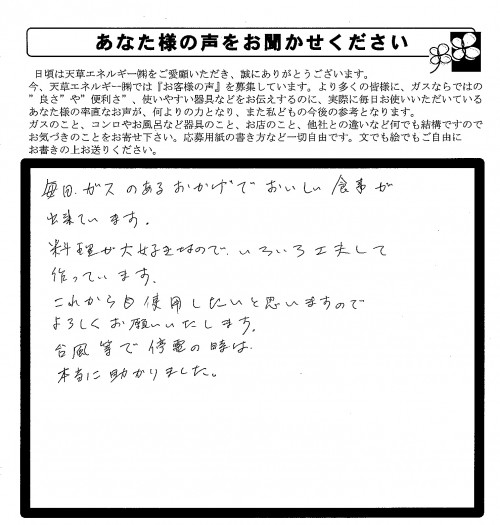 あなた様の声をお聞かせください
日頃は天草エネルギー㈱をご愛顧いただき、誠にありがとうございます。
今、天草エネルギー㈱では『お客様の声』を募集しています。より多くの皆様に、ガスならではの
”良さ”や”便利さ”、使いやすい器具などをお伝えするのに、実際に毎日お使いいただいている
あなた様の率直なお声が、何よりの力となり、また私どもの今後の参考となります。
ガスのこと、コンロやお風呂など器具のこと、お店のこと、他社との違いなど何でも結構ですので
お気づきのことをお寄せ下さい。応募用紙の書き方など一切自由です。文でも絵でもご自由に
お書きの上お送りください。
毎日、ガスのあるおかげでおいしい食事が
出来ています。
料理が大好きなので、いろいろ工夫して
作っています。
これから使用したいと思いますので
よろしくお願いいたします。
台風等で停電の時は、
本当に助かりました。